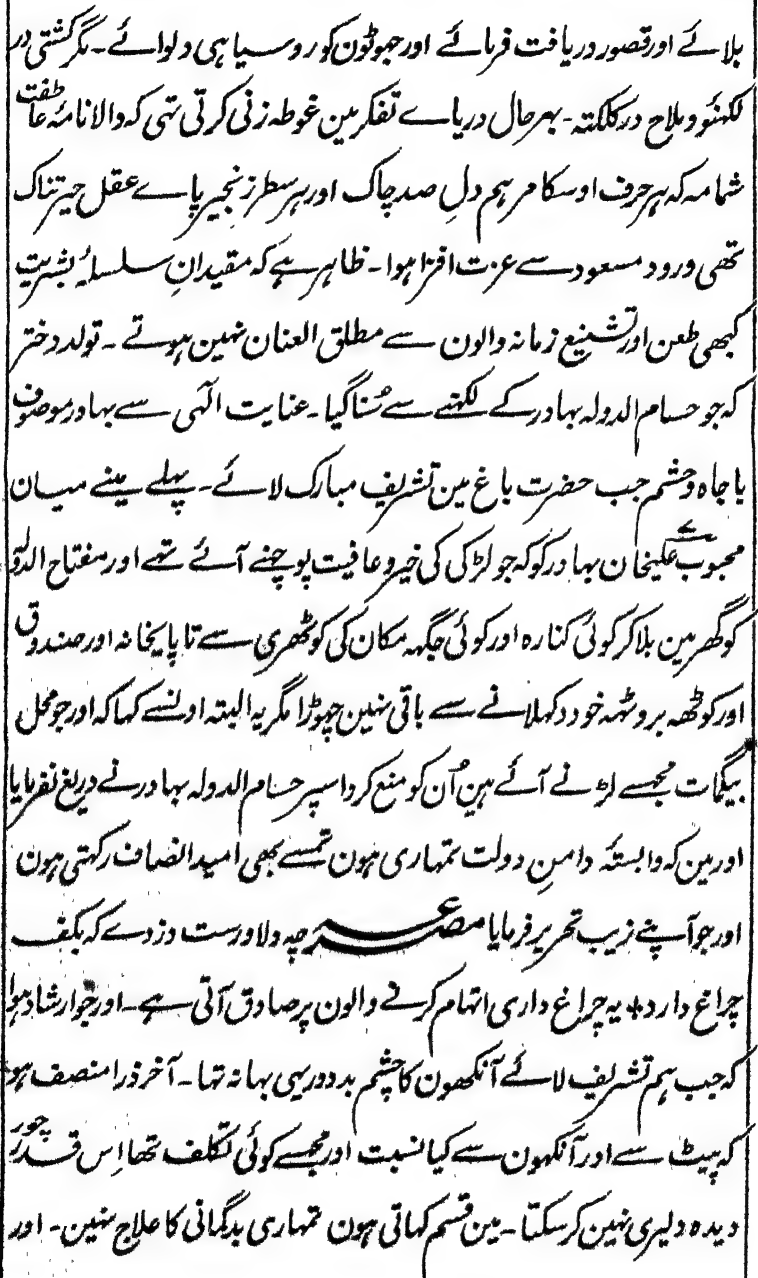 بلائے اور قصور دریافت فرمائے اور جھوٹون کو روسیاہی دلوائے۔ مگر کشتی در
لکہنؤ و ملاح در کلکتہ۔ بہرحال دریاے تفکر مین غوطہ زنی کرتی تہی کہ والا نامۂ عاطفت
شمامہ کہ ہر حرف اوسکا مرہم دلِ صد چاک اور ہر سطر زنجیر پاے عقل حیرتناک
تھی ورود مسعود سے عزت افزا ہوا۔ ظاہر ہے کہ مقیدانِ سلسلۂ بشریت
کبھی طعن اور تشنیع زمانہ والون سے مطلق العنان نہین ہوتے۔ تولد دختر
کہ جو حسام الدولہ بہادر کے لکہنے سے سُنا گیا۔ عنایت الٰہی سے بہادر موصوف
با جاہ و حشم جب حضرت باغ مین تشریف مبارک لائے۔ پہلے مینے میان
محبوب علیخان بہادر کو کہ جو لڑکی کی خیر و عافیت پوچہنے آئے تہے اور مفتاح الدولہ
کو گھر مین بلا کر کوئی کنارہ اور کوئی جگہہ مکان کی کوٹھری سے تا پایخانہ اور صندوق
اور کوٹھہ بروٹہہ خود دکہلانے سے باقی نہین چہوڑا مگر یہ البتہ اونسے کہا کہ اور جو محل
بیگمات مجہسے لڑنے آئے ہین اُن کو منع کر دو اسپر حسام الدولہ بہادر نے دریغ نفرمایا
اور مین کہ وابستۂ دامنِ دولت تمہاری ہون تمسے بھی امید انصاف رکہتی ہون
اور جو آپنے زیب تحریر فرمایا مصرعہ چہ دلاورست دزدے کہ بکف
چراغ دارد+ یہ چراغ داری اتہام کرنے والون پر صادق آتی ہے۔ اور جو ارشاد ہوا
کہ جب ہم تشریف لائے آنکھون کا چشم بد دور یہی بہانہ تہا۔ آخر ذرا منصف ہو
کہ پیٹ سے اور آنکہون سے کیا نسبت اور مجہسے کوئی تکلف تھا اِس قدر چور
دیدہ دلیری نہین کر سکتا۔ مین قسم کہاتی ہون تمہاری بدگمانی کا علاج نہین۔ اور